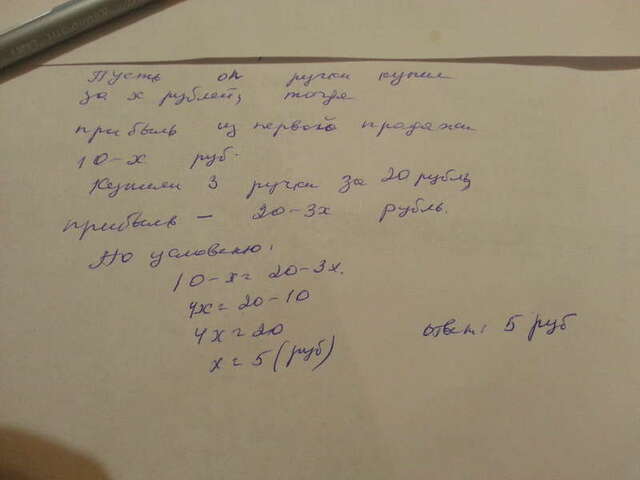 Пусть он ручки купил
за х рублей, тогда
прибыль из первого продажи
10-х руб.
Купили 3 ручки за 20 рубль,
прибыль - 20-3х рубль.
По условию:
10-х = 20-3х.
4х = 20-10
4х = 20
х = 5 (руб)
ответ: 5 руб